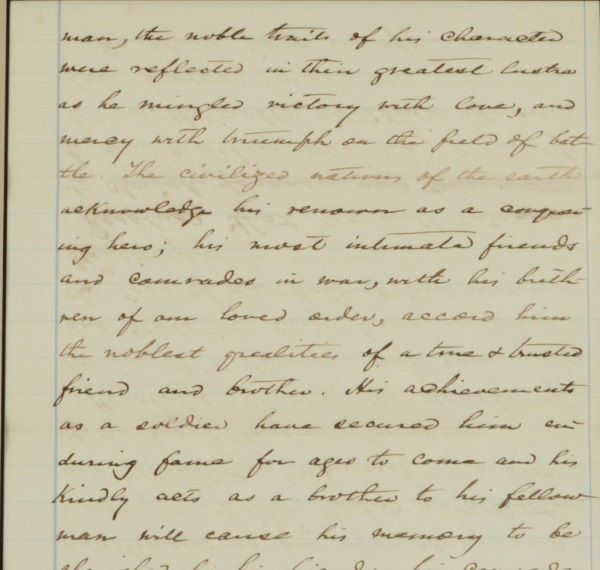 man, the noble traits of his character
were reflected in their greatest lustre
as he mingled victory with love, and
mercy with triumph on the field of bat-
tle. The civilized nations of the earth
acknowledge his renown as a conquer-
ing hero; his most intimate friends
and comrades in war, with his breth-
ren of our loved order, accord him
the noblest qualities of a true & trusted
friend and brother. His achievements
as a soldier have secured him en-
during fame for ages to come and his
kindly acts as a brother to his fellow
man will cause his memory to be